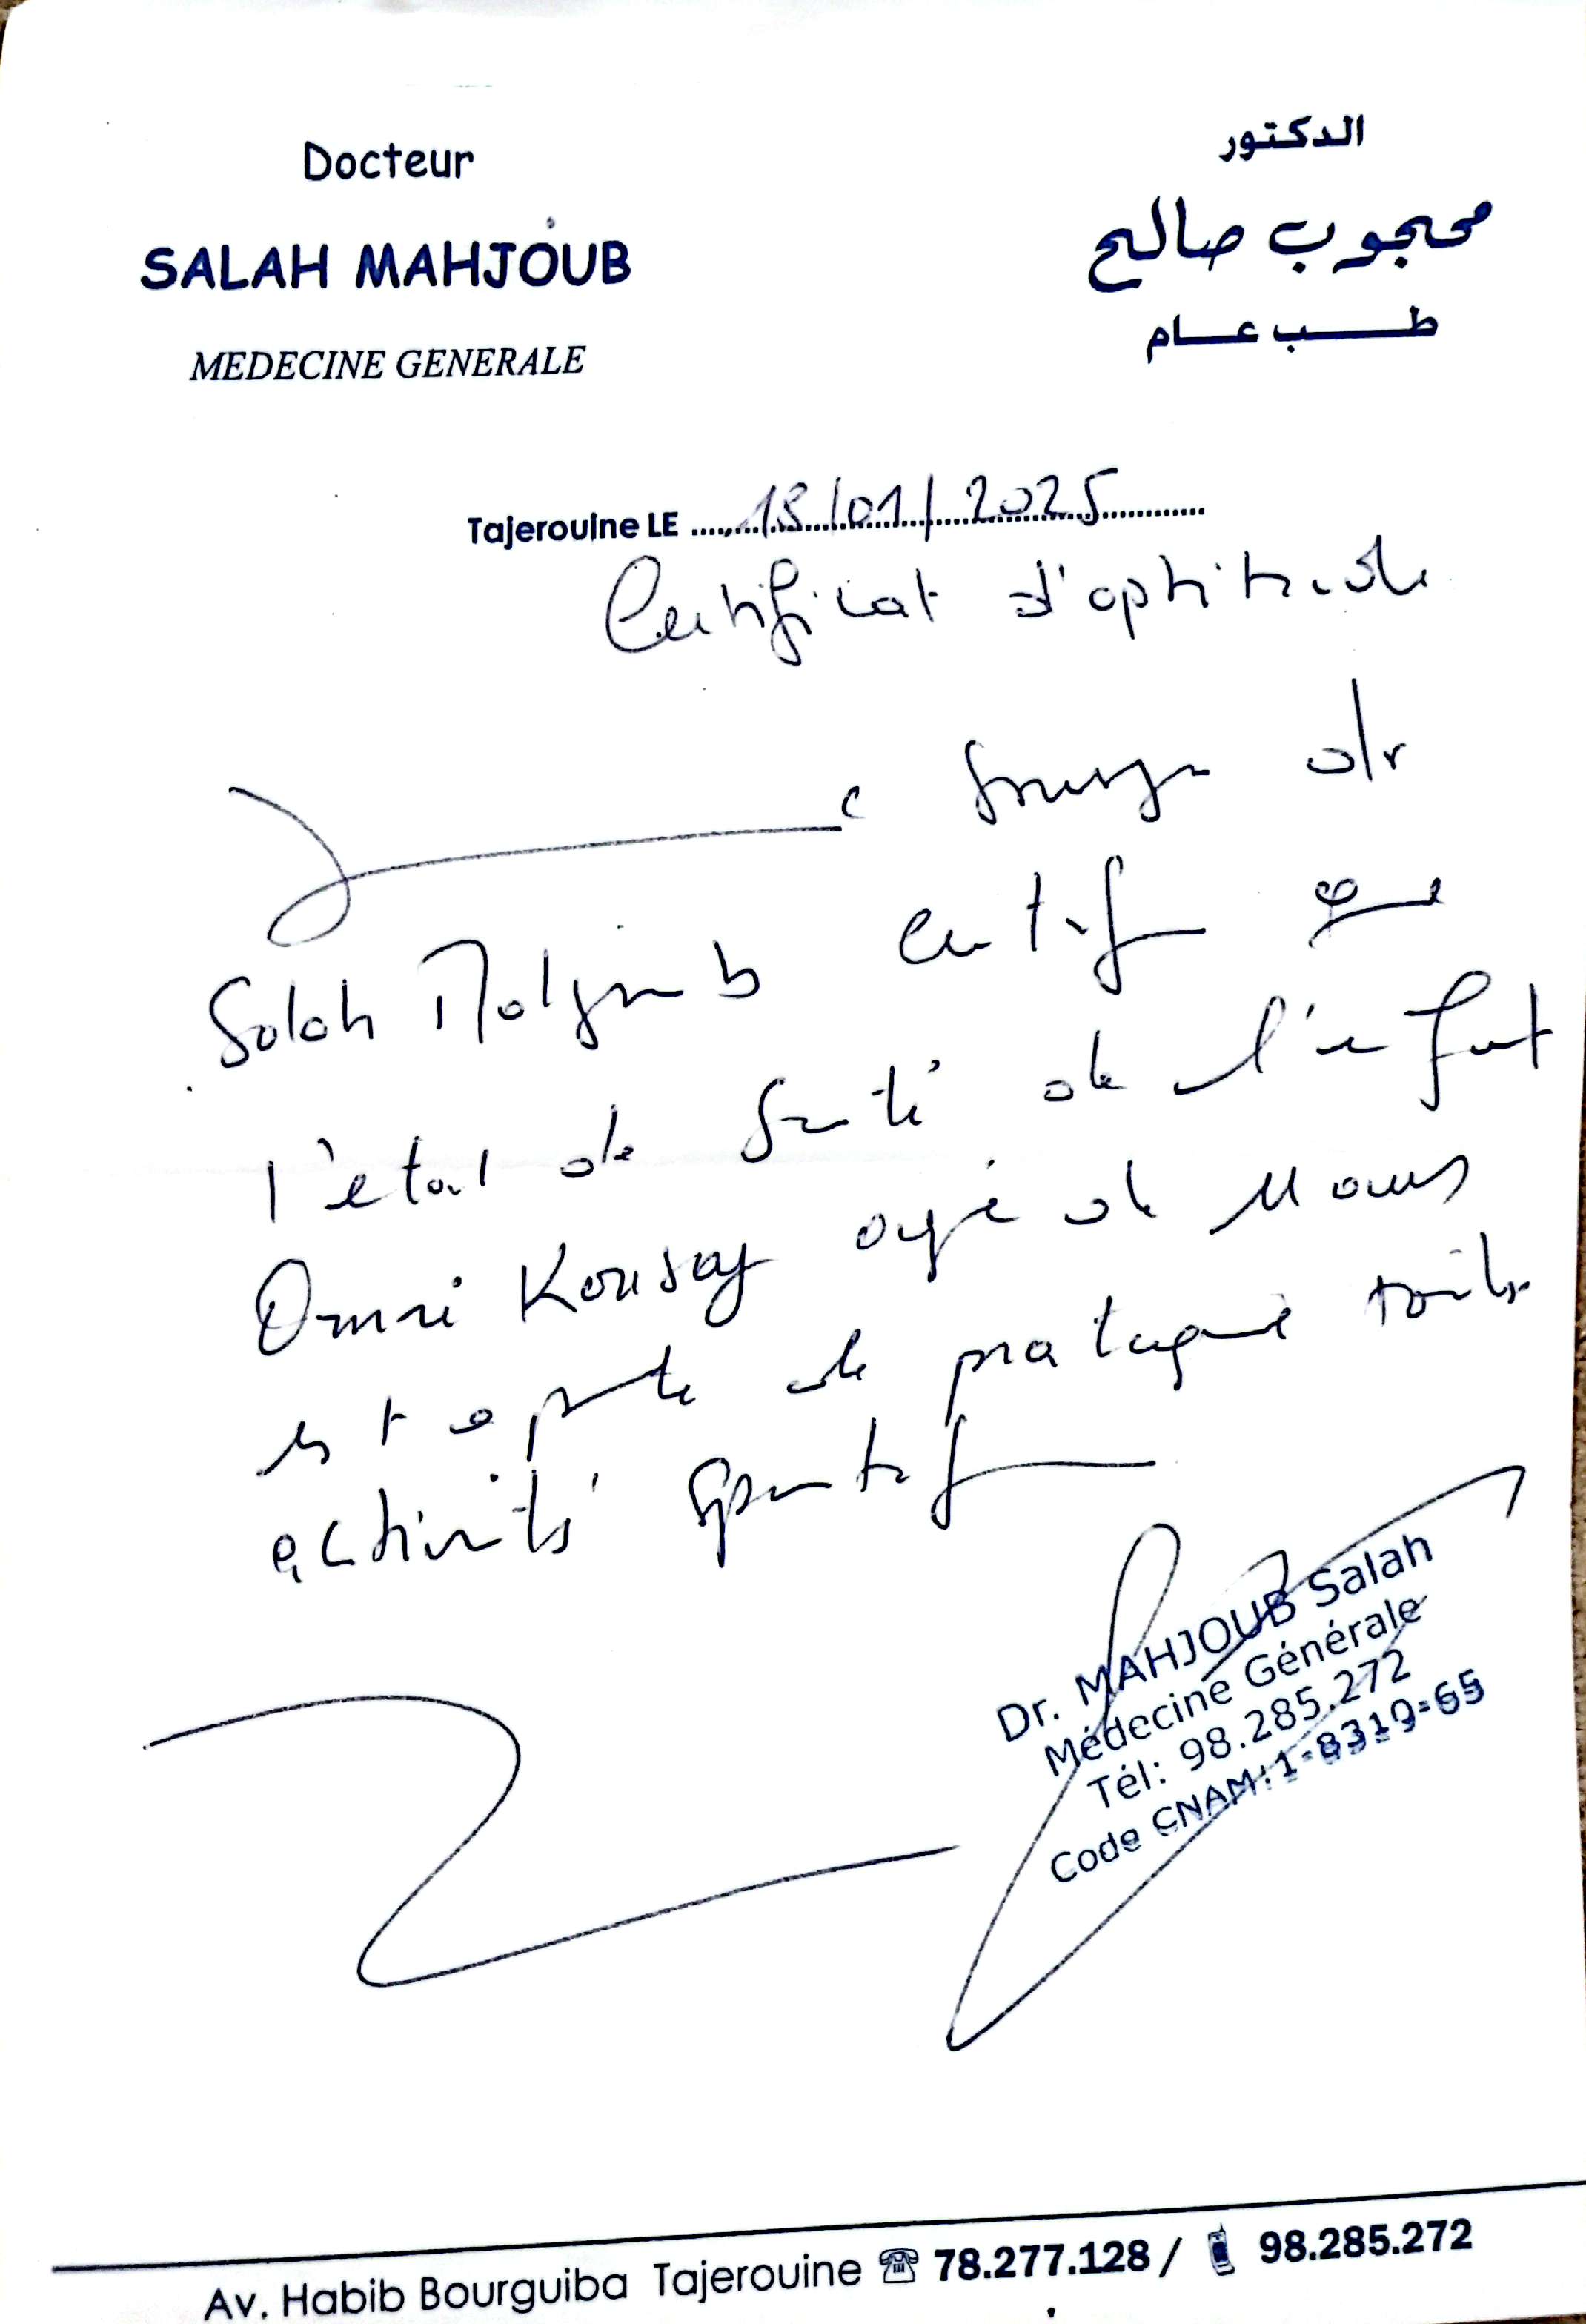 Docteur
SALAH MAHJOUB
MEDECINE GENERALE
الدكتور
محجوب صالح
طب عام
Tajerouine LE 13/01/2025
Certificat d'aptitude
Je soussigné dr
Salah Mahjoub certifie que
l'état de santé de l'enfant
Omri Kousay agé de 11 ans
est apte de pratiquer toute
activité sportif
Dr. MAHJOUB Salah
Médecine Générale
Tél: 98.285.272
Code CNAM: 1-8319-65
Av. Habib Bourguiba Tajerouine 78.277.128 / 98.285.272